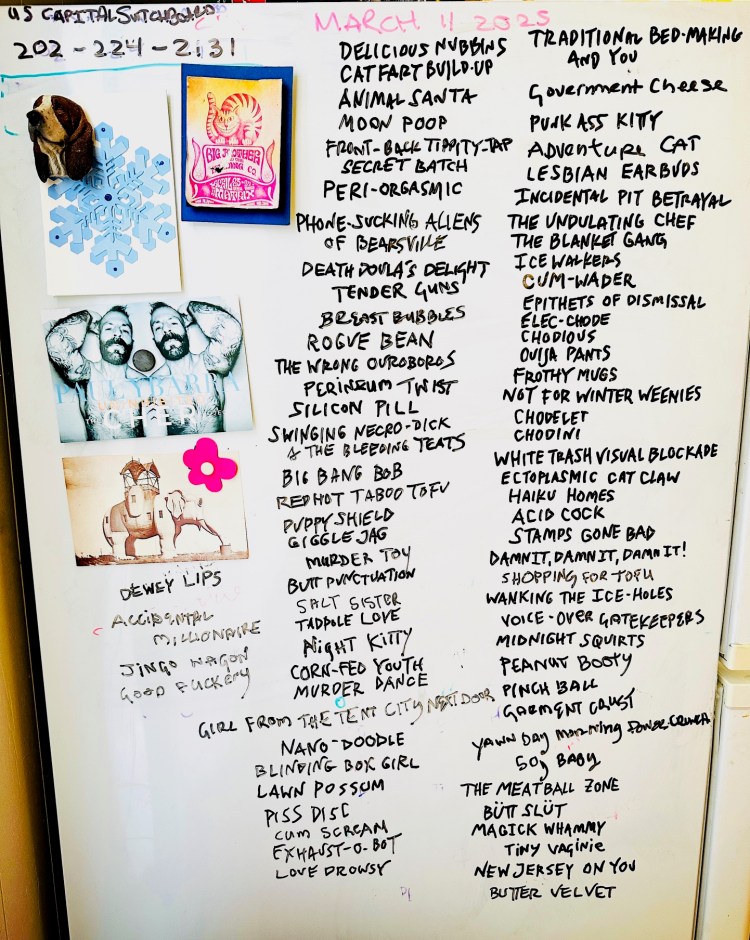 US CAPITAL SWTCHBOARD
202-224-2131
MARCH 11 2025
BIG BROTHER
DEWEY LIPS
ACCIDENTAL
MILLIONAIRE
JINGO WAGON
GOOD FUCKERY
DELICIOUS NUBBINS
CAT FART BUILD-UP
ANIMAL SANTA
MOON POOP
FRONT-BACK TIPPITY-TAP
SECRET BATCH
PERI-ORGASMIC
PHONE-SUCKING ALIENS
OF BEARSVILLE
DEATH DOULA'S DELIGHT
TENDER GUNS
BREAST BUBBLES
ROGUE BEAN
THE WRONG OUROBOROS
PERINEUM TWIST
SILICON PILL
SWINGING NECRO-DICK
& THE BLEEDING TEATS
BIG BANG BOB
RED HOT TABOO TOFU
PUPPY SHIELD
GIGGLE JAG
MURDER TOY
BUTT PUNCTUATION
SALT SISTER
TADPOLE LOVE
NIGHT KITTY
CORN-FED YOUTH
MURDER DANCE
GIRL FROM THE TENT CITY NEXT DOOR
NANO-DOODLE
BLINDING BOX GIRL
LAWN POSSUM
PISS DISC
CUM SCREAM
EXHAUST-O-BOT
LOVE DROWSY
TRADITIONAL BED-MAKING
AND YOU
Government Cheese
PUNK ASS KITTY
ADVENTURE CAT
LESBIAN EARBUDS
INCIDENTAL PIT BETRAYAL
THE UNDULATING CHEF
THE BLANKET GANG
ICE WALKERS
CUM-WADER
EPITHETS OF DISMISSAL
ELEC-CHODE
CHODIOUS
OUIJA PANTS
FROTHY MUGS
NOT FOR WINTER WEENIES
CHODELET
CHODINI
WHITE TRASH VISUAL BLOCKADE
ECTOPLASMIC CAT CLAW
HAIKU HOMES
ACID COCK
STAMPS GONE BAD
DAMNIT, DAMNIT, DAMNIT!
SHOPPING FOR TOFU
WANKING THE ICE-HOLES
VOICE-OVER GATEKEEPERS
MIDNIGHT SQUIRTS
PEANUT BOOTY
PINCH BALL
GARMENT CRUST
YAWN DAY MORNING
50g BABY
THE MEATBALL ZONE
BÜTT SLÜT
MAGICK WHAMMY
TINY VAGINIE
NEW JERSEY ON YOU
BUTTER VELVET